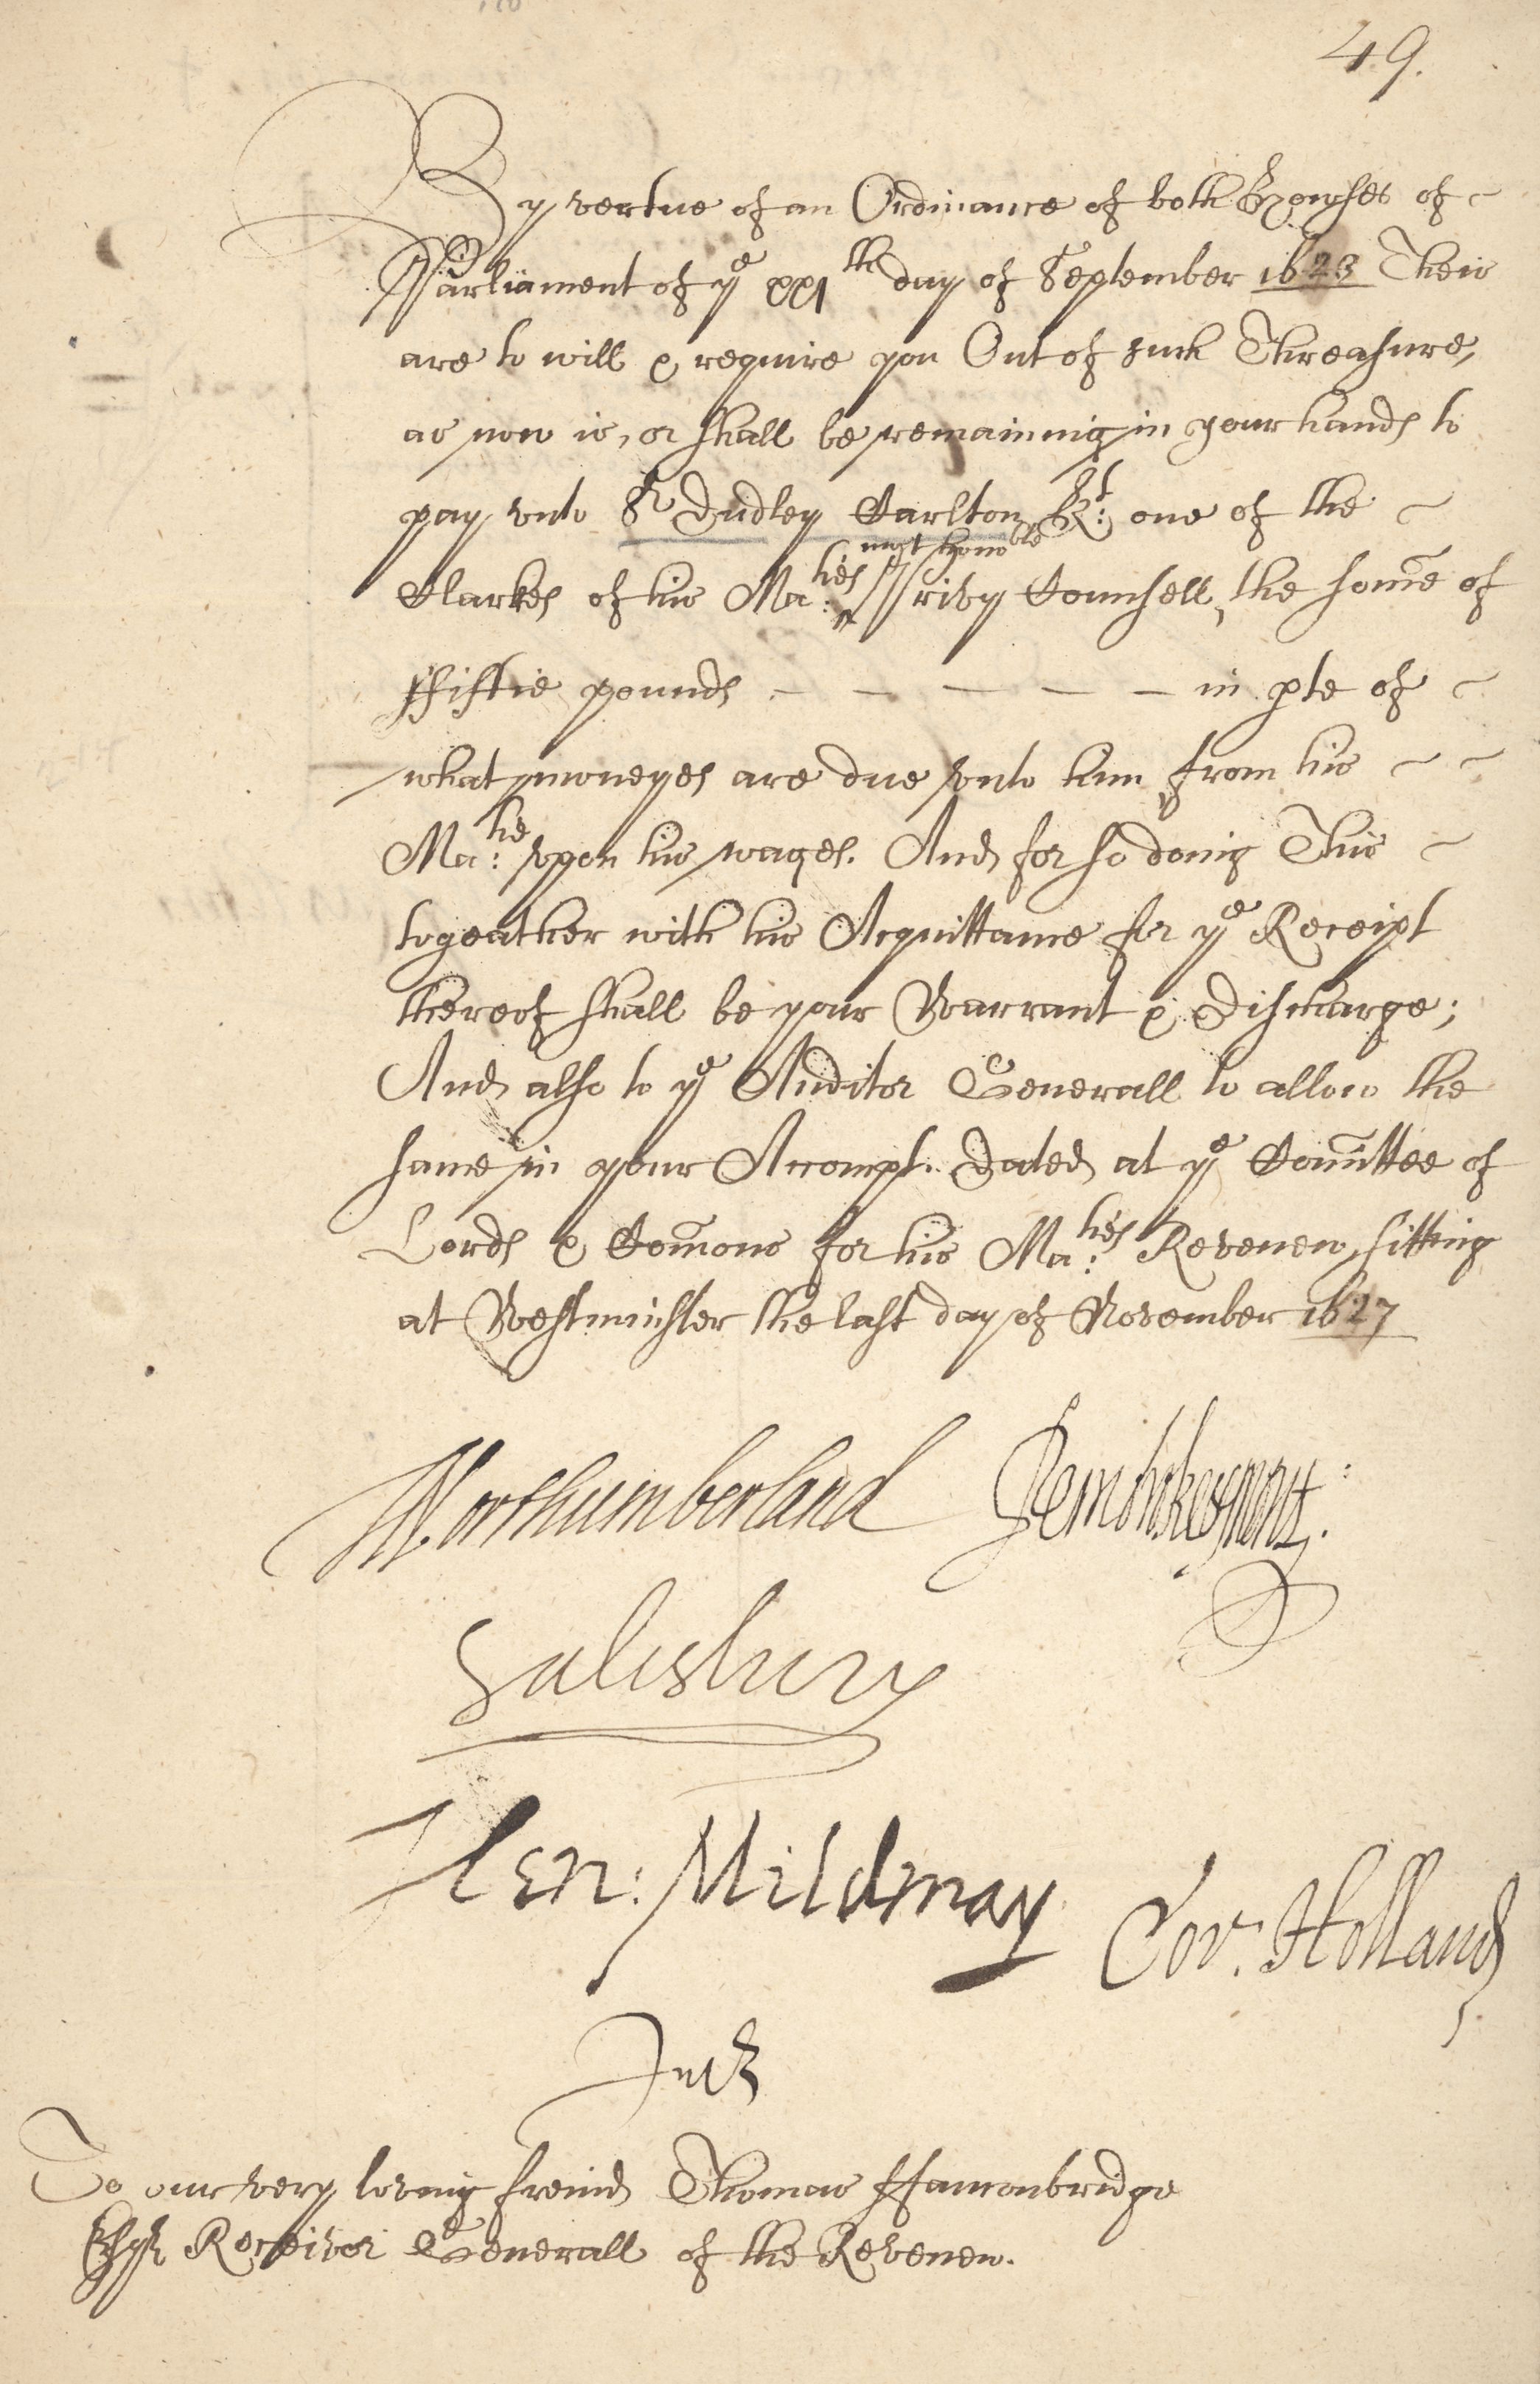 49.
By vertue of an Ordinance of both Howses of
Parliament of yͤ xxjᵗʰ day of September 1623 Theis
are to will & require you Out of such Threasure,
as now is, or shall be remaining in your hands to
pay vnto Sʳ Dudley Carlton Kᵗ: one of the
most honoᵇˡᵉ
Clarkes of his Maᵗⁱᵉˢ: Privy Counsell, the some of
ffiftie pounds - - - - - in pte of
what moneyes are due vnto him from his
Maᵗⁱᵉ: vpon his wages. And for so doing This
togeather with his Acquittance for yͤ Receipt
thereof shall be your Warrant & Discharge;
And also to yͤ Auditor Generall to allow the
same in your Accompt. Dated at yͤ Com̄ittee of
Lords & Com̄ons for his Maᵗⁱᵉˢ: Revenew sitting
at Westminster the last day of November 1627
Northumberland Pembrokemont:
Salisbury
Hen: Mildmay Cor. Holland
To our very loving freind Thomas ffauconbridge
Esqʳ Receivor Generall of the Revenew.